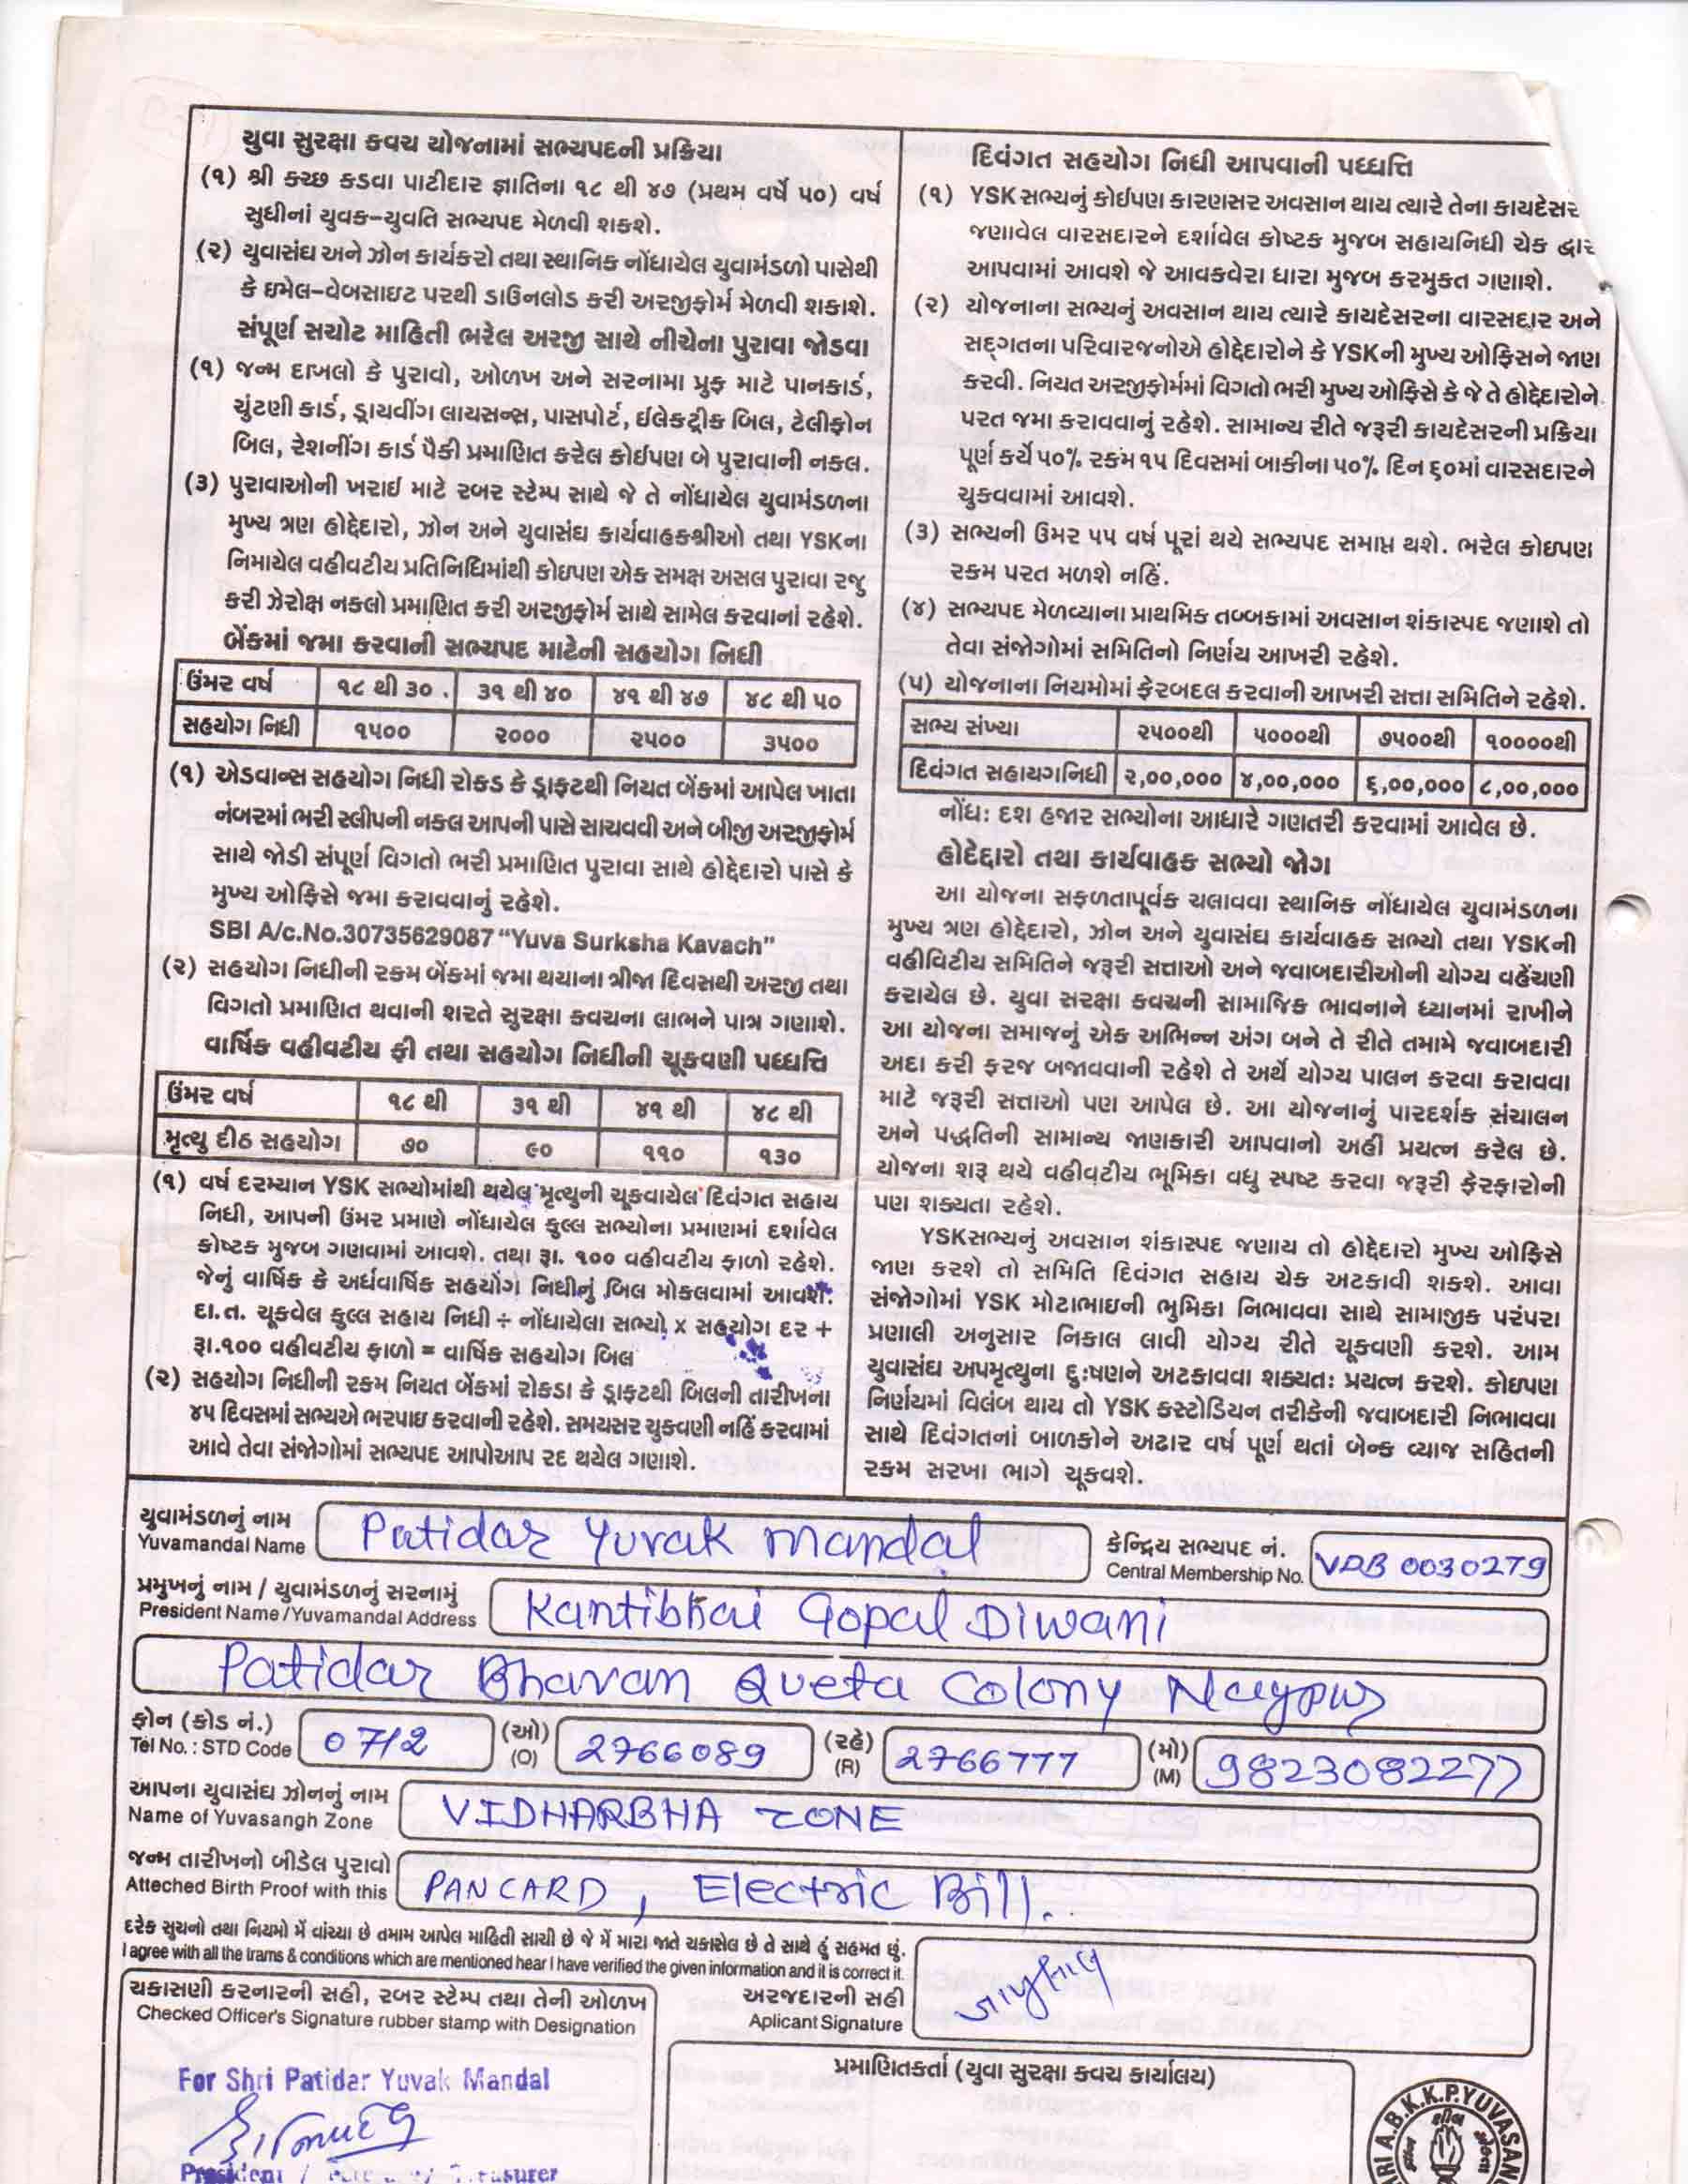 યુવા સુરક્ષા કવચ યોજનામાં સભ્યપદની પ્રક્રિયા
(૧) શ્રી કચ્છ કડવા પાટીદાર જ્ઞાતિના ૧૮ થી ૪૭ (પ્રથમ વર્ષે ૫૦) વર્ષ
સુધીનાં યુવક-યુવતિ સભ્યપદ મેળવી શકશે.
(૨) યુવાસંઘ અને ઝોન કાર્યકરો તથા સ્થાનિક નોંધાયેલ યુવામંડળો પાસેથી
કે ઇમેલ-વેબસાઇટ પરથી ડાઉનલોડ કરી અરજીફોર્મ મેળવી શકાશે.
સંપૂર્ણ સચોટ માહિતી ભરેલ અરજી સાથે નીચેના પુરાવા જોડવા
(૧) જન્મ દાખલો કે પુરાવો, ઓળખ અને સરનામા પ્રુફ માટે પાનકાર્ડ,
ચુંટણી કાર્ડ, ડ્રાયવીંગ લાયસન્સ, પાસપોર્ટ, ઈલેકટ્રીક બિલ, ટેલીફોન
બિલ, રેશનીંગ કાર્ડ પૈકી પ્રમાણિત કરેલ કોઈપણ બે પુરાવાની નકલ.
(૩) પુરાવાઓની ખરાઈ માટે રબર સ્ટેમ્પ સાથે જે તે નોંધાયેલ યુવામંડળના
મુખ્ય ત્રણ હોદ્દેદારો, ઝોન અને યુવાસંઘ કાર્યવાહકશ્રીઓ તથા YSKના
નિમાયેલ વહીવટીય પ્રતિનિધિમાંથી કોઇપણ એક સમક્ષ અસલ પુરાવા રજુ
કરી ઝેરોક્ષ નકલો પ્રમાણિત કરી અરજીફોર્મ સાથે સામેલ કરવાનાં રહેશે.
બેંકમાં જમા કરવાની સભ્યપદ માટેની સહયોગ નિધી
ઉંમર વર્ષ ૧૮ થી ૩૦ ૩૧ થી ૪૦ ૪૧ થી ૪૭ ૪૮ થી ૫૦
સહયોગ નિધી ૧૫૦૦ ૨૦૦૦ ૨૫૦૦ ૩૫૦૦
(૧) એડવાન્સ સહયોગ નિધી રોકડ કે ડ્રાફટથી નિયત બેંકમાં આપેલ ખાતા
નંબરમાં ભરી સ્લીપની નકલ આપની પાસે સાચવવી અને બીજી અરજીફોર્મ
સાથે જોડી સંપૂર્ણ વિગતો ભરી પ્રમાણિત પુરાવા સાથે હોદ્દેદારો પાસે કે
મુખ્ય ઓફિસે જમા કરાવવાનું રહેશે.
SBI A/c.No.30735629087 "Yuva Surksha Kavach"
(૨) સહયોગ નિધીની રકમ બેંકમાં જમા થયાના ત્રીજા દિવસથી અરજી તથા
વિગતો પ્રમાણિત થવાની શરતે સુરક્ષા કવચના લાભને પાત્ર ગણાશે.
વાર્ષિક વહીવટીય ફી તથા સહયોગ નિધીની ચૂકવણી પધ્ધતિ
ઉંમર વર્ષ ૧૮ થી ૩૧ થી ૪૧ થી ૪૮ થી
મૃત્યુ દીઠ સહયોગ ૭૦ ૯૦ ૧૧૦ ૧૩૦
(૧) વર્ષ દરમ્યાન YSK સભ્યોમાંથી થયેલ મૃત્યુની ચૂકવાયેલ દિવંગત સહાય
નિધી, આપની ઉંમર પ્રમાણે નોંધાયેલ કુલ્લ સભ્યોના પ્રમાણમાં દર્શાવેલ
કોષ્ટક મુજબ ગણવામાં આવશે. તથા રૂા. ૧૦૦ વહીવટીય ફાળો રહેશે.
જેનું વાર્ષિક કે અર્ધવાર્ષિક સહયોગ નિધીનું બિલ મોકલવામાં આવશે.
દા.ત. ચૂકવેલ કુલ્લ સહાય નિધી ÷ નોંધાયેલા સભ્યો x સહયોગ દર +
રૂા.૧૦૦ વહીવટીય ફાળો = વાર્ષિક સહયોગ બિલ
(૨) સહયોગ નિધીની રકમ નિયત બેંકમાં રોકડા કે ડ્રાફટથી બિલની તારીખના
૪૫ દિવસમાં સભ્યએ ભરપાઇ કરવાની રહેશે. સમયસર ચુકવણી નહિં કરવામાં
આવે તેવા સંજોગોમાં સભ્યપદ આપોઆપ રદ થયેલ ગણાશે.
દિવંગત સહયોગ નિધી આપવાની પધ્ધત્તિ
(૧) YSK સભ્યનું કોઈપણ કારણસર અવસાન થાય ત્યારે તેના કાયદેસર
જણાવેલ વારસદારને દર્શાવેલ કોષ્ટક મુજબ સહાયનિધી ચેક દ્વાર
આપવામાં આવશે જે આવકવેરા ધારા મુજબ કરમુકત ગણાશે.
(૨) યોજનાના સભ્યનું અવસાન થાય ત્યારે કાયદેસરના વારસદાર અને
સદ્ગતના પરિવારજનોએ હોદ્દેદારોને કે YSKની મુખ્ય ઓફિસને જાણ
કરવી. નિયત અરજીફોર્મમાં વિગતો ભરી મુખ્ય ઓફિસે કે જે તે હોદ્દેદારોને
પરત જમા કરાવવાનું રહેશે. સામાન્ય રીતે જરૂરી કાયદેસરની પ્રક્રિયા
પૂર્ણ કર્યે ૫૦% રકમ ૧૫ દિવસમાં બાકીના ૫૦% દિન ૬૦માં વારસદારને
ચુકવવામાં આવશે.
(૩) સભ્યની ઉમર ૫૫ વર્ષ પૂરાં થયે સભ્યપદ સમાપ્ત થશે. ભરેલ કોઇપણ
રકમ પરત મળશે નહિં.
(૪) સભ્યપદ મેળવ્યાના પ્રાથમિક તબ્બકામાં અવસાન શંકાસ્પદ જણાશે તો
તેવા સંજોગોમાં સમિતિનો નિર્ણય આખરી રહેશે.
(૫) યોજનાના નિયમોમાં ફેરબદલ કરવાની આખરી સત્તા સમિતિને રહેશે.
સભ્ય સંખ્યા ૨૫૦૦થી ૫૦૦૦થી ૭૫૦૦થી ૧૦૦૦૦થી
દિવંગત સહાયગનિધી ૨,૦૦,૦૦૦ ૪,૦૦,૦૦૦ ૬,૦૦,૦૦૦ ૮,૦૦,૦૦૦
નોંધ: દશ હજાર સભ્યોના આધારે ગણતરી કરવામાં આવેલ છે.
હોદેદ્દારો તથા કાર્યવાહક સભ્યો જોગ
આ યોજના સફળતાપૂર્વક ચલાવવા સ્થાનિક નોંધાયેલ યુવામંડળના
મુખ્ય ત્રણ હોદ્દેદારો, ઝોન અને યુવાસંઘ કાર્યવાહક સભ્યો તથા YSKની
વહીવિટીય સમિતિને જરૂરી સત્તાઓ અને જવાબદારીઓની યોગ્ય વહેંચણી
કરાયેલ છે. યુવા સરક્ષા કવચની સામાજિક ભાવનાને ધ્યાનમાં રાખીને
આ યોજના સમાજનું એક અભિન્ન અંગ બને તે રીતે તમામે જવાબદારી
અદા કરી ફરજ બજાવવાની રહેશે તે અર્થે યોગ્ય પાલન કરવા કરાવવા
માટે જરૂરી સત્તાઓ પણ આપેલ છે. આ યોજનાનું પારદર્શક સંચાલન
અને પદ્ધતિની સામાન્ય જાણકારી આપવાનો અહીં પ્રયત્ન કરેલ છે.
યોજના શરૂ થયે વહીવટીય ભૂમિકા વધુ સ્પષ્ટ કરવા જરૂરી ફેરફારોની
પણ શક્યતા રહેશે.
YSKસભ્યનું અવસાન શંકાસ્પદ જણાય તો હોદ્દેદારો મુખ્ય ઓફિસે
જાણ કરશે તો સમિતિ દિવંગત સહાય ચેક અટકાવી શકશે. આવા
સંજોગોમાં YSK મોટાભાઇની ભુમિકા નિભાવવા સાથે સામાજીક પરંપરા
પ્રણાલી અનુસાર નિકાલ લાવી યોગ્ય રીતે ચૂકવણી કરશે. આમ
યુવાસંઘ અપમૃત્યુના દુઃષણને અટકાવવા શક્યતઃ પ્રયત્ન કરશે. કોઇપણ
નિર્ણયમાં વિલંબ થાય તો YSK કસ્ટોડિયન તરીકેની જવાબદારી નિભાવવા
સાથે દિવંગતનાં બાળકોને અઢાર વર્ષ પૂર્ણ થતાં બેન્ક વ્યાજ સહિતની
રકમ સરખા ભાગે ચૂકવશે.
યુવામંડળનું નામ
Yuvamandal Name Patidar Yuvak Mandal
કેન્દ્રિય સભ્યપદ નં.
Central Membership No. VRB 0030279
પ્રમુખનું નામ / યુવામંડળનું સરનામું
President Name/Yuvamandal Address Kantibhai Gopal Diwani
Patidar Bhavan Queta Colony Nagpur
ફોન (કોડ નં.) (ઓ) (રહે) (મો)
Tel No. : STD Code 0712 (O) 2766089 (R) 2766777 (M) 9823082277
આપના યુવાસંઘ ઝોનનું નામ
Name of Yuvasangh Zone VIDHARBHA ZONE
જન્મ તારીખનો બીડેલ પુરાવો
Atteched Birth Proof with this PANCARD, Electric Bill.
દરેક સુચનો તથા નિયમો મેં વાંચ્યા છે તમામ આપેલ માહિતી સાચી છે જે મેં મારા જાતે ચકાસેલ છે તે સાથે હું સહમત છું.
I agree with all the trams & conditions which are mentioned hear I have verified the given information and it is correct it.
ચકાસણી કરનારની સહી, રબર સ્ટેમ્પ તથા તેની ઓળખ
Checked Officer's Signature rubber stamp with Designation
અરજદારની સહી
Aplicant Signature
For Shri Patidar Yuvak Mandal
President
પ્રમાણિતકર્તા (યુવા સુરક્ષા કવચ કાર્યાલય)
A.B.K.K.P.YUVASANG